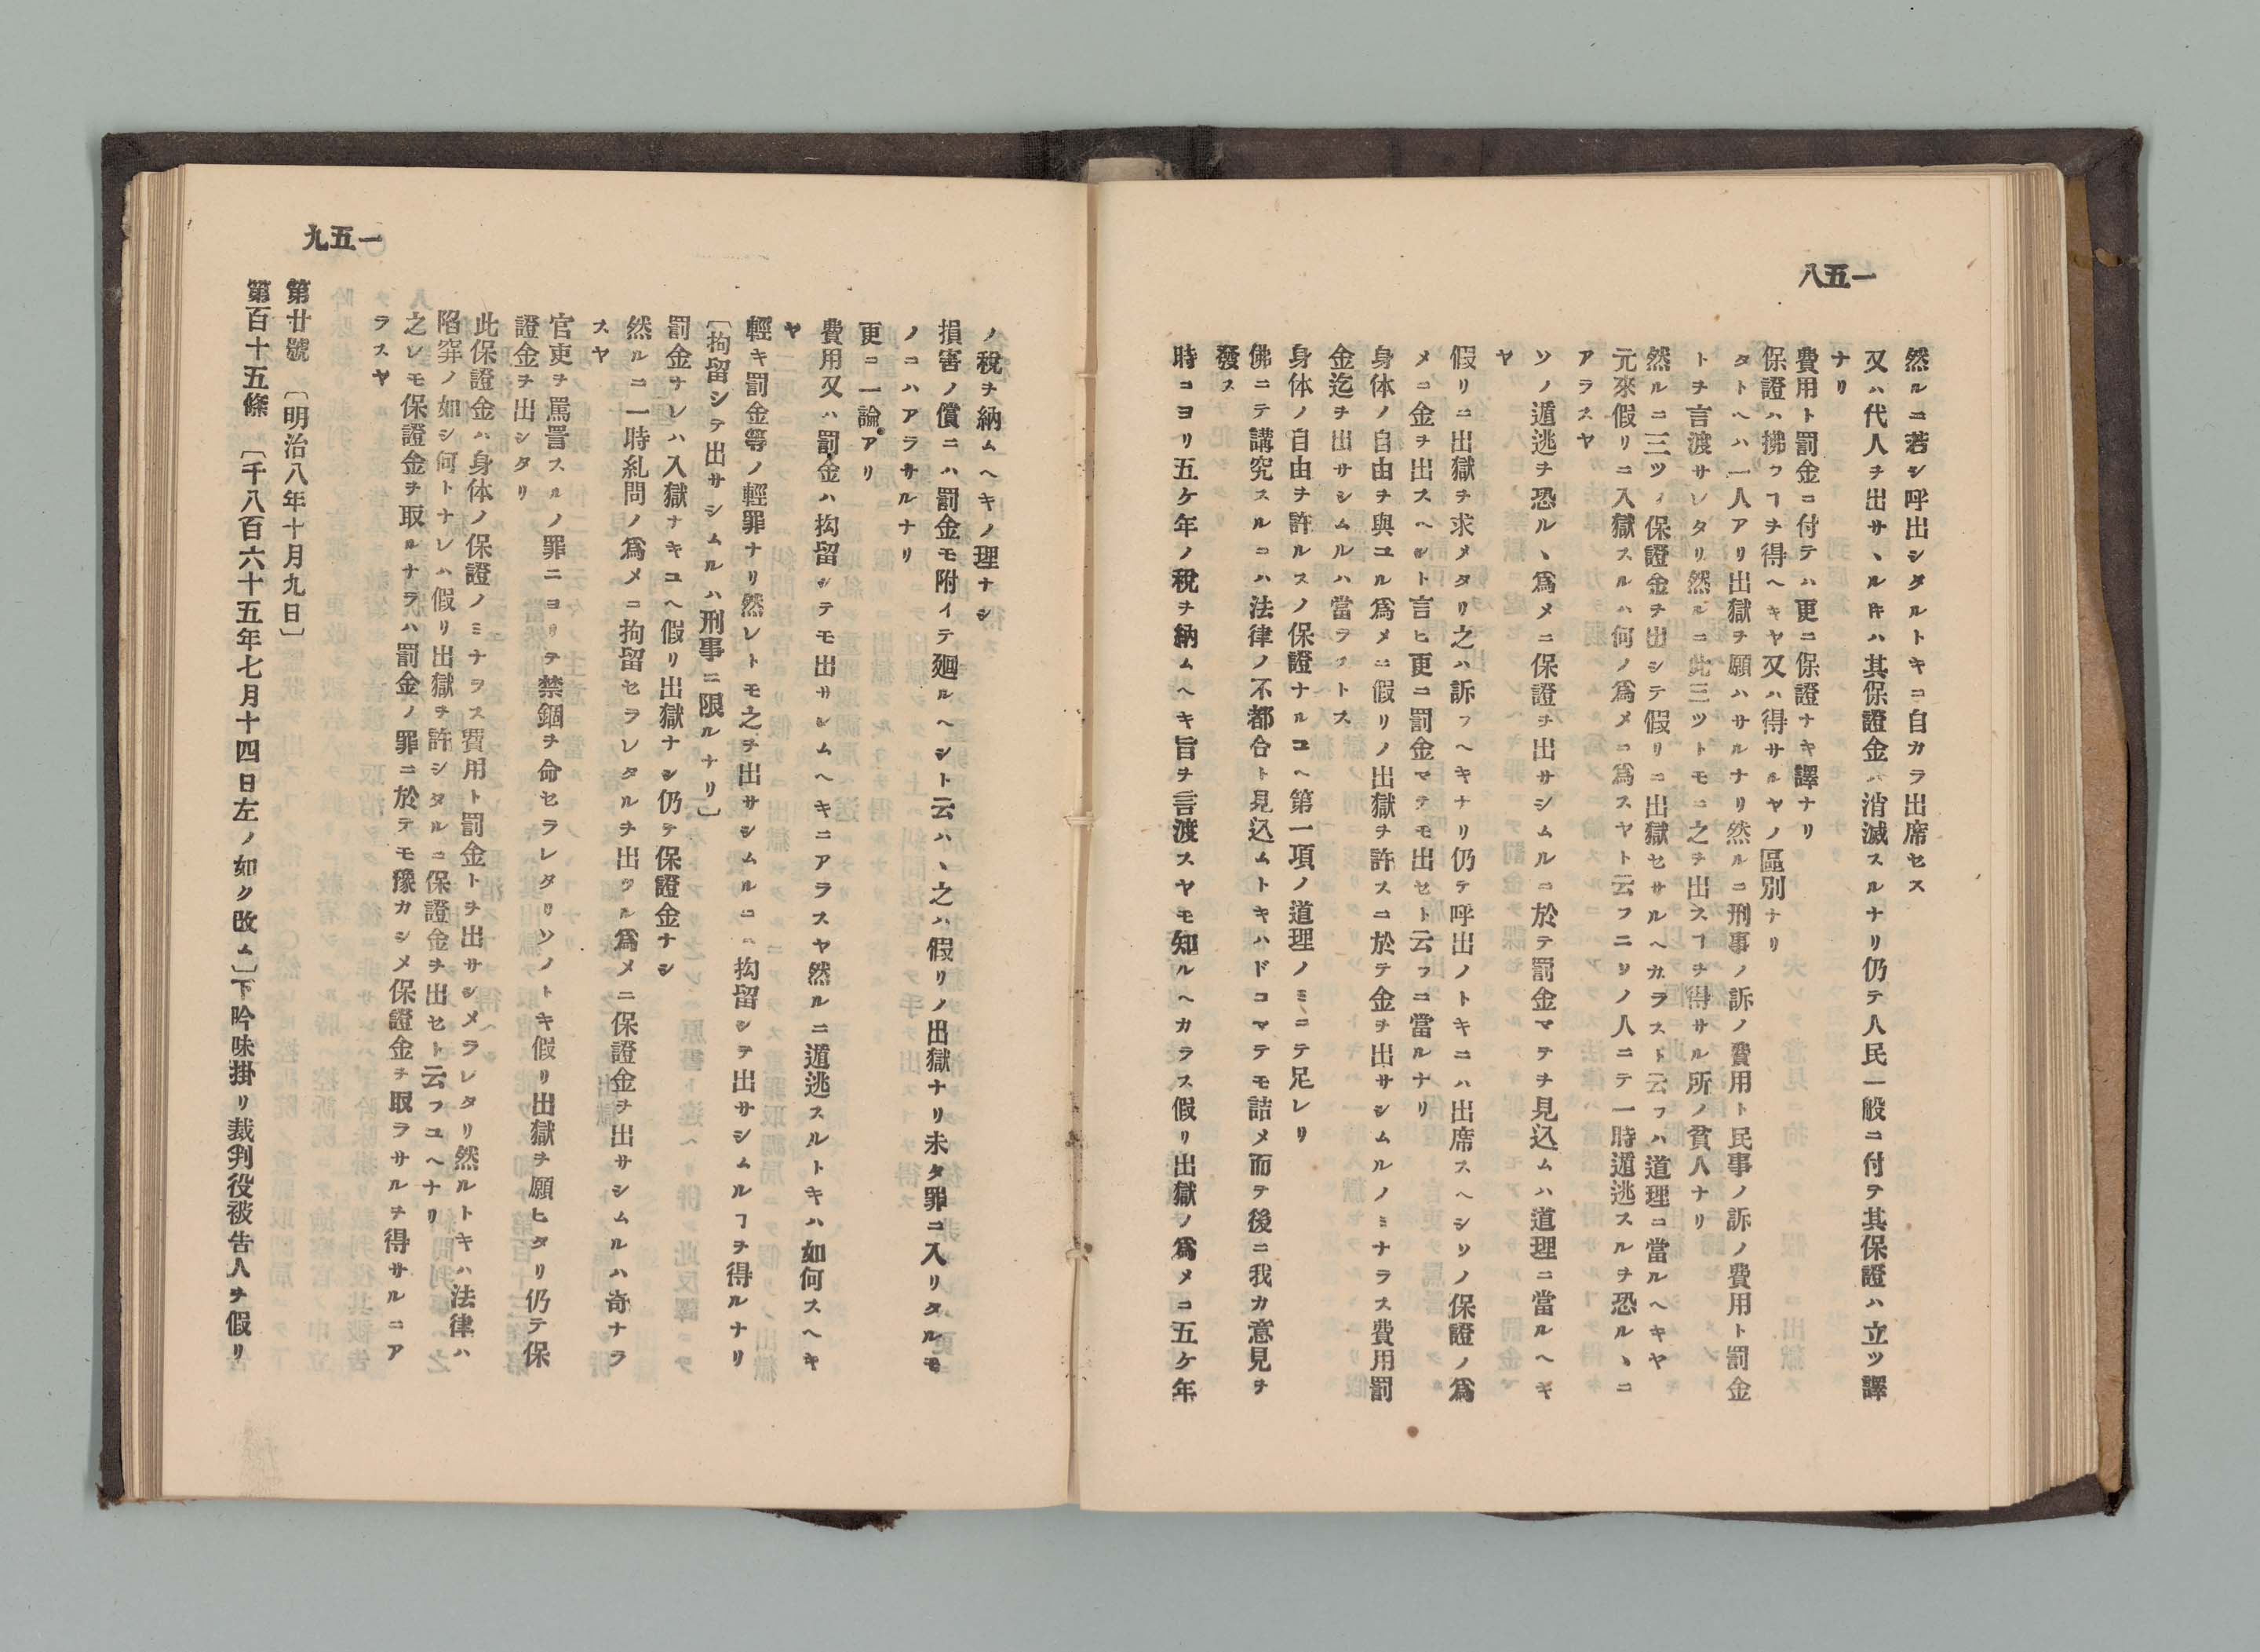 一五八
然ルニ若シ呼出シタルトキニ自カラ出席セス
又ハ代人ヲ出サヽル𪜈ハ其保證金ハ消滅スルナリ仍テ人民一般ニ付テ其保證ハ立ツ譯
ナリ
費用ト罰金ニ付テハ更ニ保證ナキ譯ナリ
保證ハ拂フヿヲ得ヘキヤ又ハ得サルヤノ區別ナリ
タトヘハ一人アリ出獄ヲ願ハサルナリ然ルニ刑事ノ訴ノ費用ト民事ノ訴ノ費用ト罰金
トヲ言渡サレタリ然ルニ此三ツトモニ之ヲ出スヿヲ得サル所ノ貧人ナリ
然ルニ三ツノ保證金ヲ出シテ假リニ出獄セサルヘカラスト云フハ道理ニ當ルヘキヤ
元來假リニ入獄スルハ何ノ爲メニ爲スヤト云フニソノ人ニテ一時遁逃スルヲ恐ルヽニ
アラスヤ
ソノ遁逃ヲ恐ルヽ爲メニ保證ヲ出サシムルニ於テ罰金マテヲ見込ムハ道理ニ當ルヘキ
ヤ
假リニ出獄ヲ求メタリ之ハ訴フヘキナリ仍テ呼出ノトキニハ出席スヘシソノ保證ノ爲
メニ金ヲ出スヘシト言ヒ更ニ罰金マテモ出セト云フニ當ルナリ
身体ノ自由ヲ與ユル爲メニ假リノ出獄ヲ許スニ於テ金ヲ出サシムルノミナラス費用罰
金迄ヲ出サシムルハ當ラストス
身体ノ自由ヲ許ルスノ保證ナルユヘ第一項ノ道理ノミニテ足レリ
佛ニテ講究スルニハ法律ノ不都合ト見込ムトキハドコマテモ詰メ而テ後ニ我カ意見ヲ
發ス
時ニヨリ五ケ年ノ税ヲ納ムヘキ旨ヲ言渡スヤモ知ルヘカラス假リ出獄ノ爲メニ五ケ年
一五九
ノ税ヲ納ムヘキノ理ナシ
損害ノ償ニハ罰金モ附イテ廻ルヘシト云ハヽ之ハ假リノ出獄ナリ未タ罪ニ入リタルモ
ノニハアラサルナリ
更ニ一論アリ
費用又ハ罰金ハ拘留シテモ出サシムヘキニアラスヤ然ルニ遁逃スルトキハ如何スヘキ
ヤ
輕キ罰金等ノ輕罪ナリ然レトモ之ヲ出サシムルニハ拘留シテ出サシムルヿヲ得ルナリ
〔拘留シテ出サシムルハ刑事ニ限ルナリ〕
罰金ナレハ入獄ナキユヘ假リ出獄ナシ仍テ保證金ナシ
然ルニ一時糺問ノ爲メニ拘留セラレタルヲ出ツル爲メニ保證金ヲ出サシムルハ奇ナラ
スヤ
官吏ヲ罵詈スルノ罪ニヨリテ禁錮ヲ命セラレタリソノトキ假リ出獄ヲ願ヒタリ仍テ保
證金ヲ出シタリ
此保證金ハ身体ノ保證ノミナラス費用ト罰金トヲ出サシメラレタリ然ルトキハ法律ハ
陷穽ノ如シ何トナレハ假リ出獄ヲ許シタルニ保證金ヲ出セト云フユヘナリ
之レモ保證金ヲ取ルナラハ罰金ノ罪ニ於テモ豫カシメ保證金ヲ取ラサルヲ得サルニア
ラスヤ
第廿號　〔明治八年十月九日〕
第百十五條　〔千八百六十五年七月十四日左ノ如ク改ム〕下吟味掛リ裁判役被告人ヲ假リ